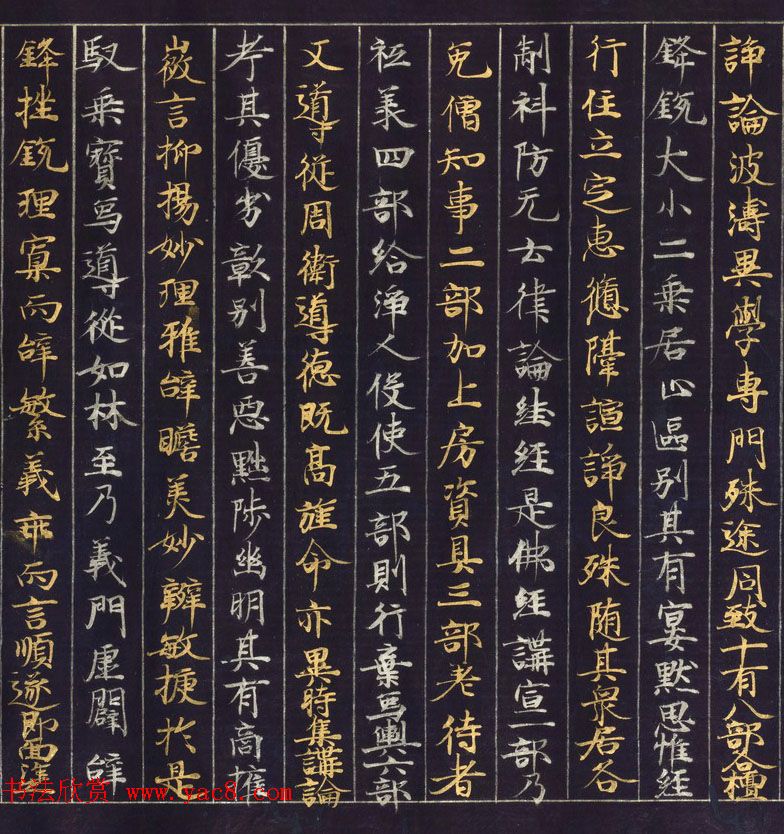 諍論波濤異學專門殊途同致十有八部各擅
鋒銳大小二乘居止區別其有宴默思惟經
行住立定惠悠隔諠諍良殊随其衆居各
制科防无云律論絓經是佛經講宣一部乃
免僧知事二部加上房資具三部差待者
祗羕四部給淨人役使五部則行乗烏輿六部
又導從周衛導徳既髙旌命亦異時集講論
考其優劣彰别善惡黜陟幽明其有商搉
微言抑揚妙理雅辝瞻美妙辯敏捷於是
馭乗寳烏導從如林至乃義門虛闢辝
鋒挫銳理寡而辝繁義乖而言順遂即面塗
书法欣赏 www.yac8.com